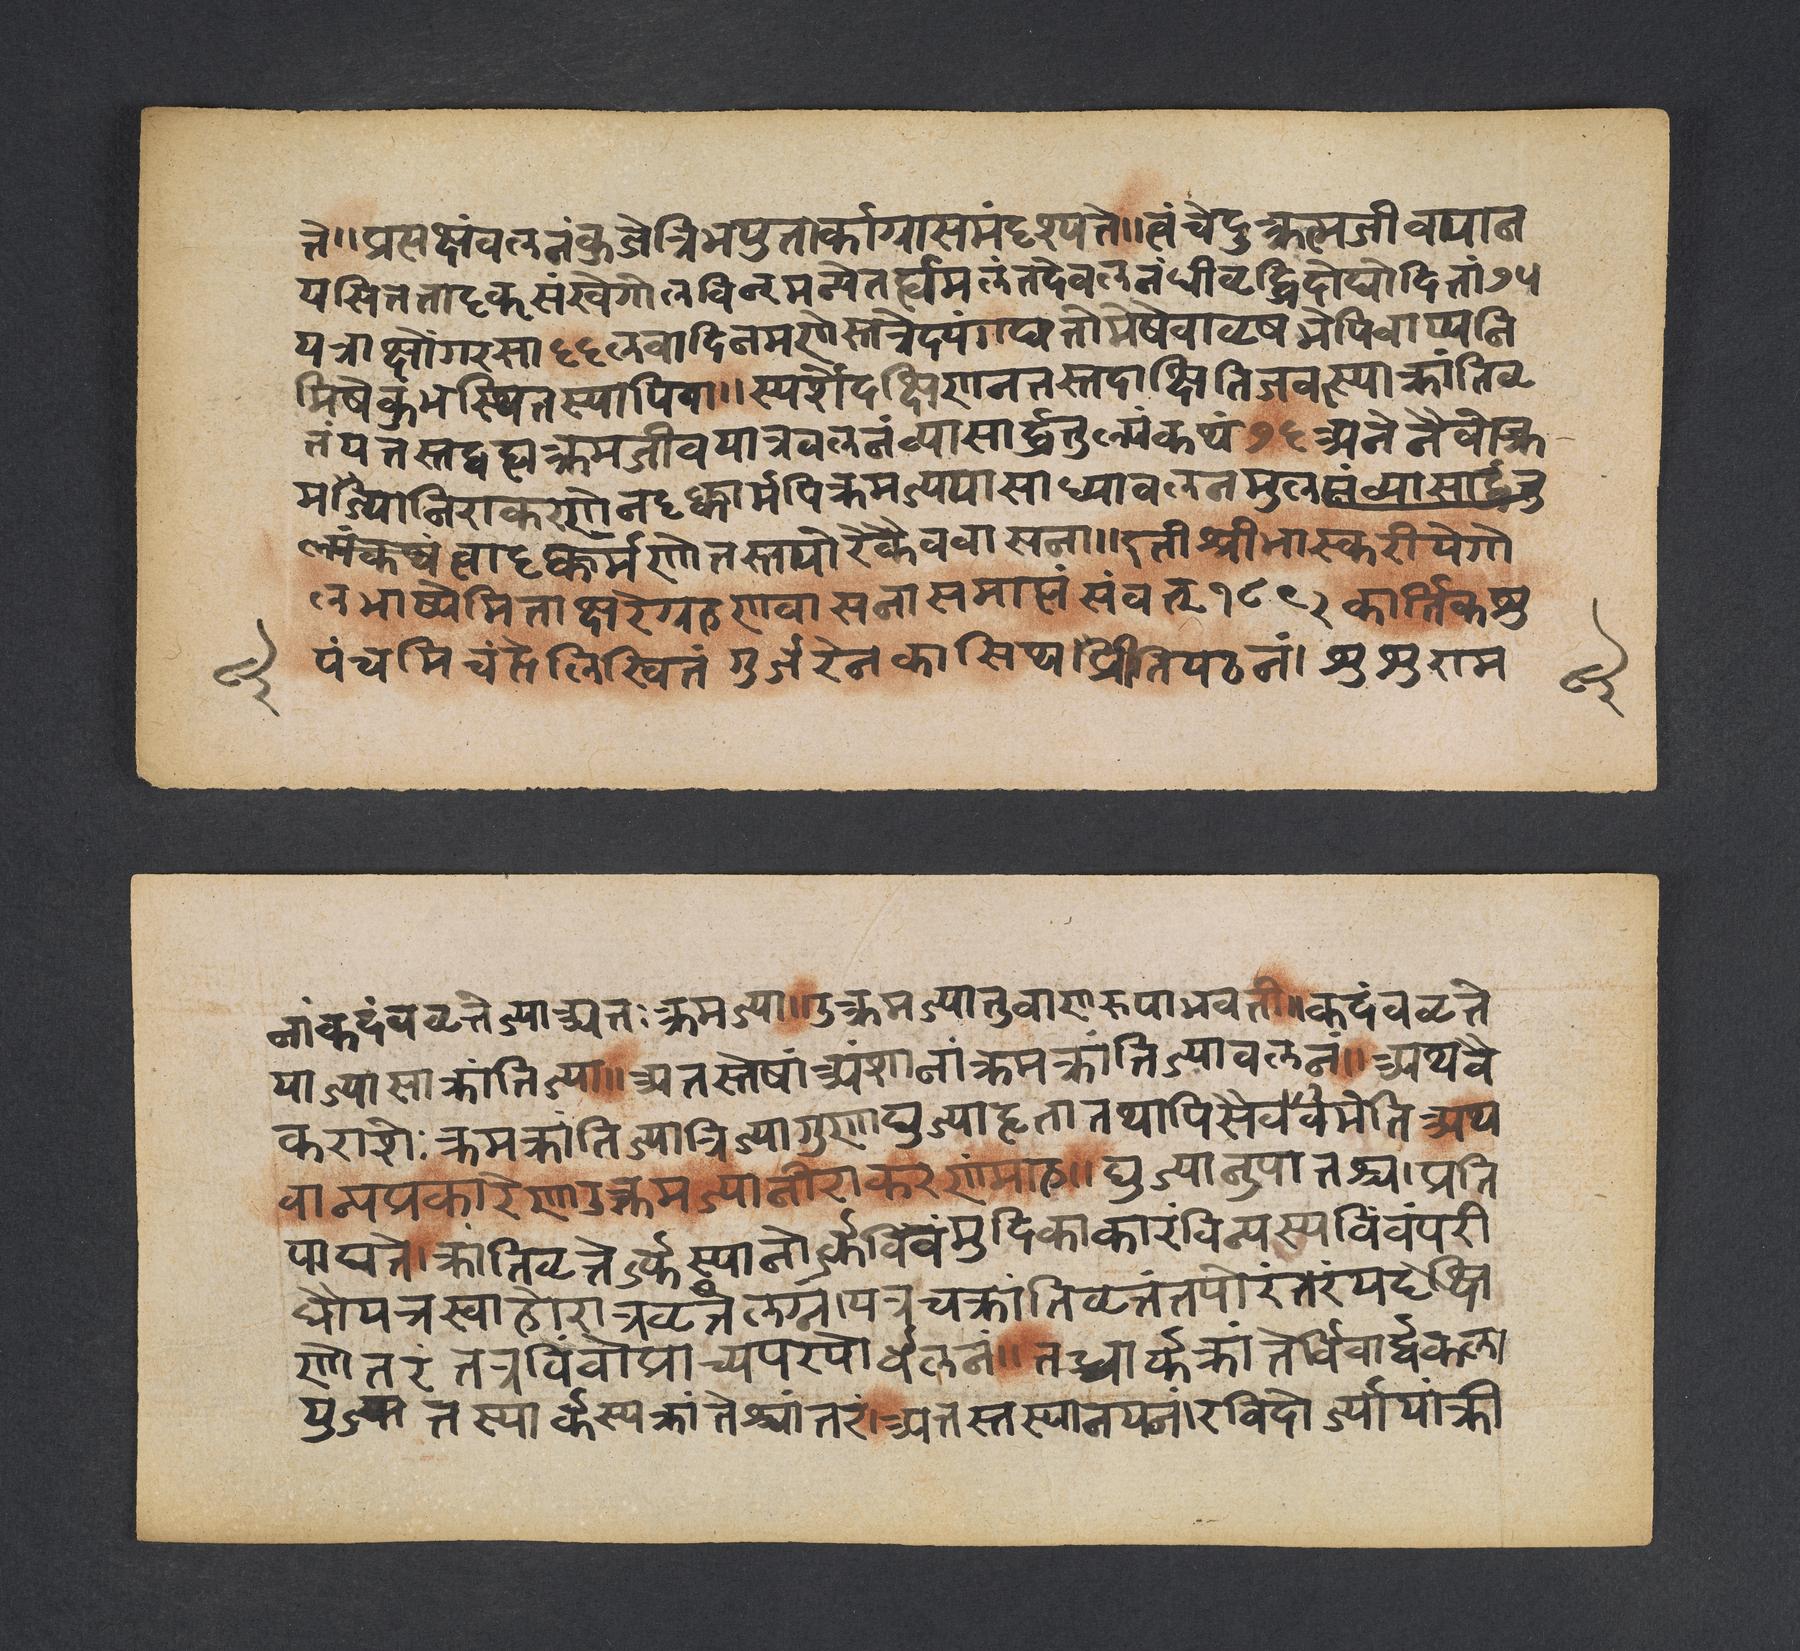 ते॥ प्रसक्षंवलनंकुजेत्रिभपुतार्कागासमंदृश्यते॥त्वंचेदुत्क्रमजीवयान
यसितत्तादृक्संखेगोलविन्मन्येतर्ह्यमलंतदेवलनंधीवृद्धिदोद्योदितां७५
यत्राक्षोंगरसा६६लवादिनमणेस्तत्रैदयंगच्छतोमेषेवावृषभेपिवाप्यनि
मिषेकुंभस्थितस्यापिवा॥ स्पर्शोदक्षिणानतस्तदाक्षितिजवत्स्याक्रांतिवृ
तंयतस्तद्ब्रह्युत्क्रमजीवयात्रवलनंव्यासार्द्धतुल्यंकथं ७६ अनेनैवोत्क्रि
मज्ययोनिराकरणेनदृक्कार्मपिक्रमज्ययासाध्यावलनमुलत्लंव्यासार्द्धतु
ल्यंकथंत्वादृक्कर्मणोतस्तयोरेकैववासना॥ इती श्रीभास्करीयेगो
लभाष्येमिताक्षरेग्रहणवासनासमाप्तं संवत् १८९२ कार्तिकशु
पंचमि चंद्रे लिखितं गुर्जरेनकासिथ्य। प्रीतिपठनं। शुशुराम
९२ ९२
नांकदंवव्रत्तेज्याअतः क्रमज्या॥उत्क्रमज्यातुवाणरूपाभवती॥कदंववृत्ते
याज्यासाक्रांतिज्या॥ अतस्तेषांअंशानांक्रमक्रांतिज्यावलनं॥ अथवै
कराशेः क्रमक्रांतिज्यात्रिज्यागुणाद्युज्याहृतातथापिसैवेवमिति अथ
वान्यप्रकारेणउत्क्रमज्यानीराकरणंमाह॥ द्युज्यानुपातश्च।प्रति
पाद्यते। क्रांतिवृत्तेर्कस्यानोर्कविंवंमुदिकाकारंविन्यस्यविंवंपरी
धौयत्रस्वाहोरात्रवृत्तंलग्नं।यत्रचक्रांतिवृत्तंतयोरंतरंयद्दक्षि
णोतरं तत्रविंवेप्राच्यपरयोर्वलनं॥ तच्चार्कक्रांतेर्विवार्द्धकला
युज्क तस्यार्कस्यक्रांतेश्चांतरं। अतस्तस्यानयनं।रविदोर्ज्यायांक्री